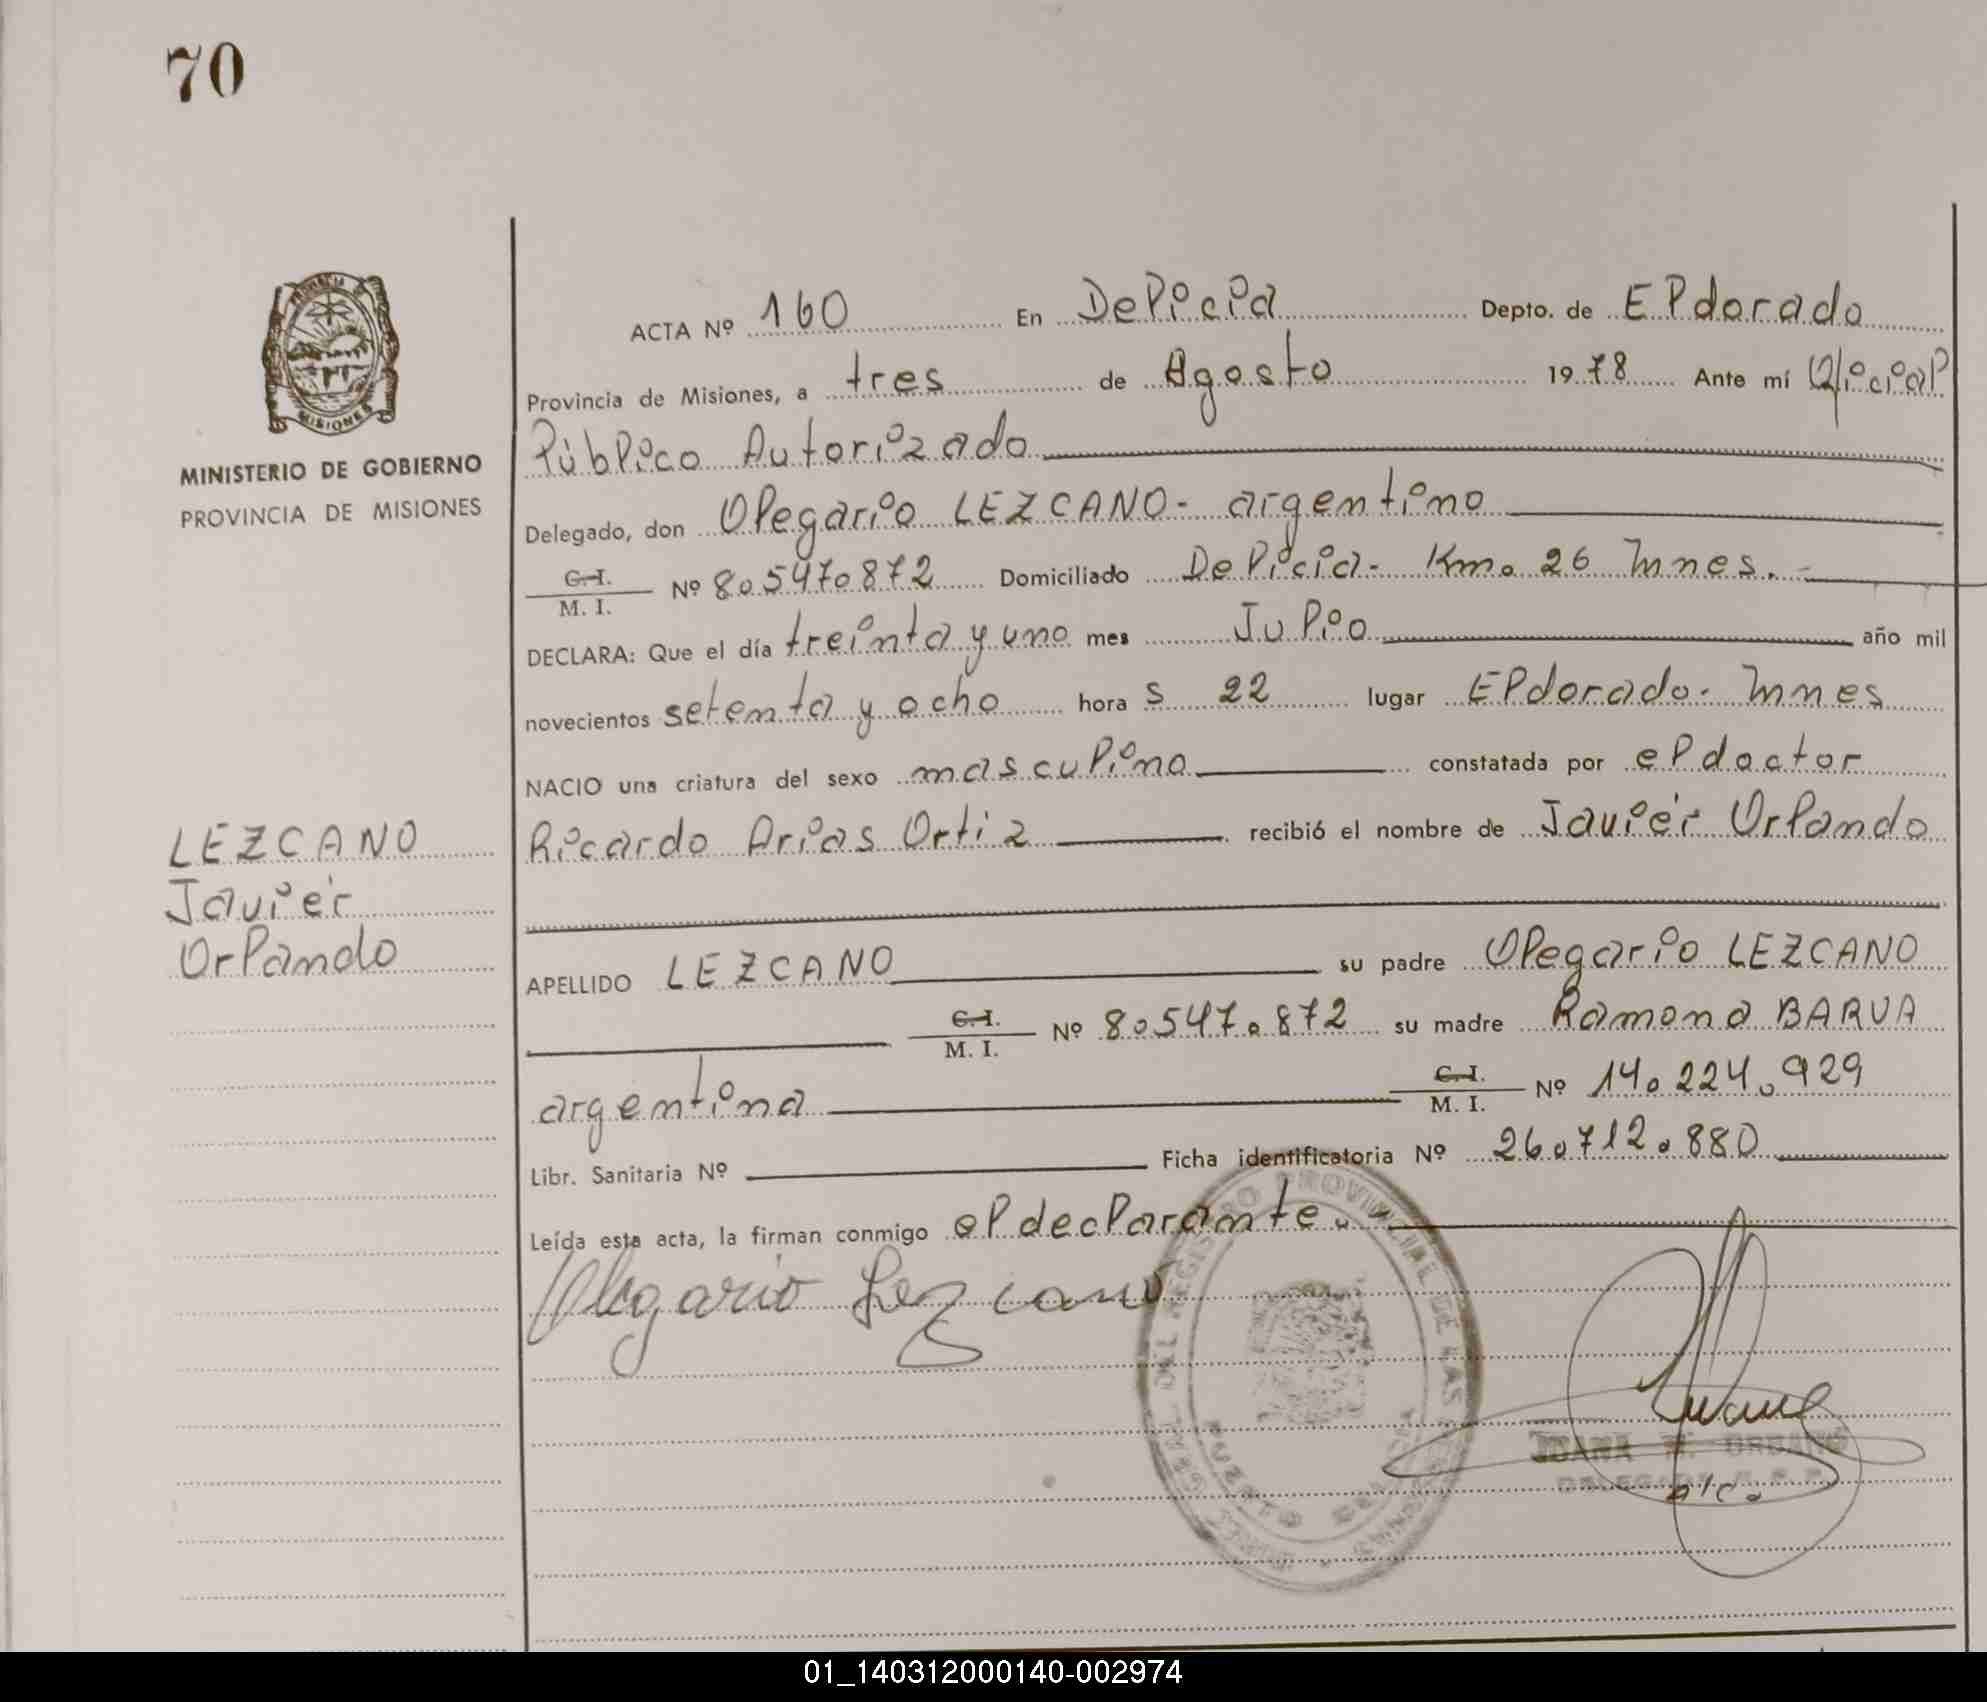 70
PROVINCIA DE
MISIONES
MINISTERIO DE GOBIERNO
PROVINCIA DE MISIONES
LEZCANO
Javiér
Orlando
ACTA Nº 160 En Delicia Depto. de Eldorado
Provincia de Misiones, a tres de Agosto 1978 Ante mí Oficial
Público Autorizado
Delegado, don Olegario LEZCANO- argentino
C. I.
M. I. Nº 8.0.547.872 Domiciliado Delicia- Km. 26 Mnes.-
DECLARA: Que el día treinta y uno mes Julio año mil
novecientos setenta y ocho hora s 22 lugar Eldorado- Mnes
NACIO una criatura del sexo masculino constatada por el doctor
Ricardo Arias Ortiz recibió el nombre de Javiér Orlando
APELLIDO LEZCANO su padre Olegario LEZCANO
C. I.
M. I. Nº 8.0.547.872 su madre Ramona BARUA
argentina C. I.
M. I. Nº 14.224.929
Libr. Sanitaria Nº Ficha identificatoria Nº 26.712.880
Leída esta acta, la firman conmigo el declarante.-
Olegario Lezcano
DEL REGISTRO PROVINCIAL DE LAS PERSONAS
PUERTO DELICIA
JUANA M. URBANO
DELEGADA
01_140312000140-002974